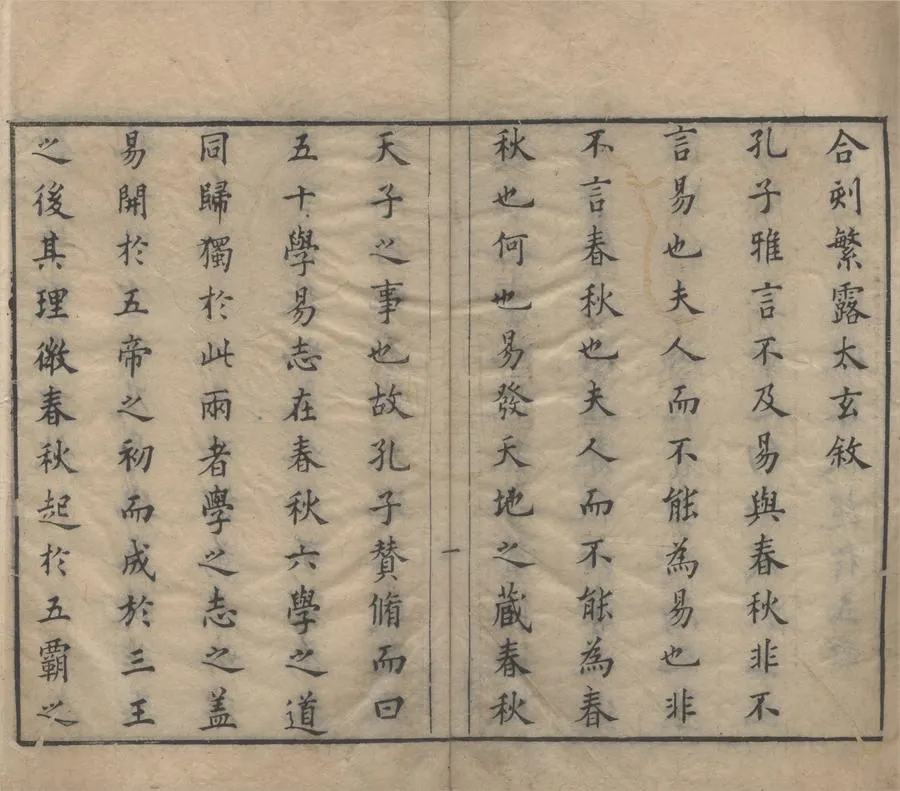 合刻繁露太玄敘
孔子雅言不及易與春秋非不
言易也夫人而不能為易也非
不言春秋也夫人而不能為春
秋也何也易發天地之藏春秋
一
天子之事也故孔子贊脩而曰
五十學易志在春秋六學之道
同歸獨於此兩者學之志之盖
易開於五帝之初而成於三王
之後其理微春秋起於五霸之